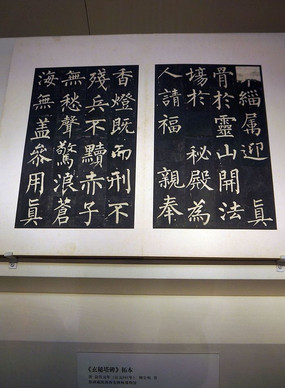 緇属迎 真
骨於靈山開法
場於 秘殿為
人請福 親奉
香燈既而刑不
殘兵不黷赤子
無愁聲驚浪蒼
海無盖參用真
《玄秘塔碑》拓本